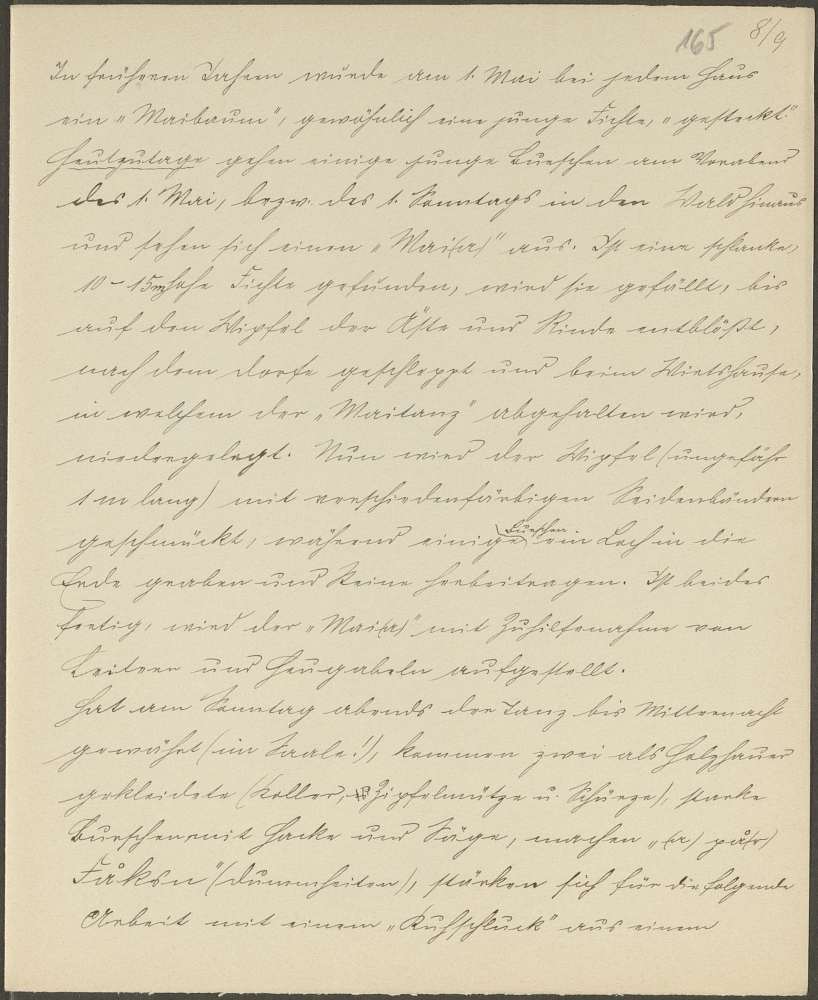 165 8/9
In früheren Jahren wurde am 1. Mai bei jedem Haus
ein „Maibaum", gewöhnlich eine junge Fichte, „gesteckt".
Heutzutage gehen einige junge Burschen am Vorabend
des 1. Mai, bezw. des 1. Sonntags in den Wald hinaus
und sehen sich einen „Mai(a)" aus. Ist eine schlanke,
10-15m hohe Fichte gefunden, wird sie gefällt, bis
auf den Wipfel der Äste und Rinde entblößt,
nach dem Dorfe geschleppt und beim Wirtshause,
in welchem der „Maitanz" abgehalten wird,
niedergelegt. Nun wird der Wipfel (ungefähr
1 m lang) mit verschiedenfärbigen Seidenbändern
geschmückt, während einige Burschen ein Loch in die
Erde graben und Steine herbeitragen. Ist beides
fertig, wird der „Mai(a)" mit Zuhilfenahme von
Leitern und Heugabeln aufgestellt.
Hat am Sonntag abends der Tanz bis Mitternacht
gewährt (im Saale!), kommen zwei als Holzhauer
gekleidete (Koller, Zipfelmütze u. Schürze), starke
Burschen mit Hacke und Säge, machen „(a) på(r)
Fåksn" (Dummheiten), stärken sich für die folgende
Arbeit mit einem „Kuhschluck" aus einem